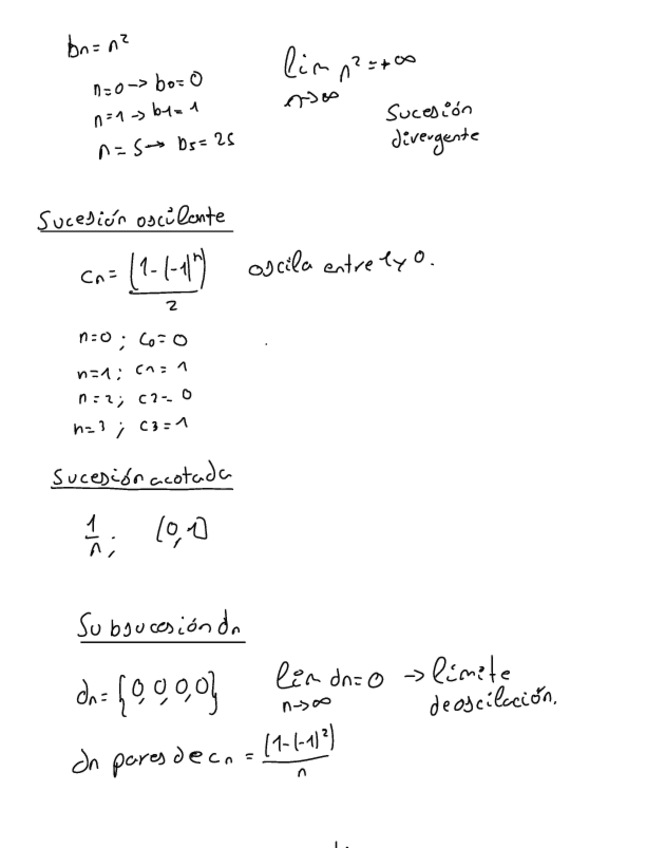 bn = n²
lim n² = +∞
n→∞
n=0 → b0 = 0
n=1 → b1 = 1
n = 5 → b5 = 25
Sucesión
divergente
Sucesión oscilante
cn = (1-(-1)^n)/2 oscila entre 1 y 0.
n=0 ; c0 = 0
n=1 ; c1 = 1
n=2 ; c2 = 0
n=3 ; c3 = 1
Sucesión acotada
1/n ; (0,1]
Subsucesión dn
dn = {0,0,0,0} lim dn = 0 → límite
n→∞ de oscilación.
dn pares de cn = (1-(-1)²)/n